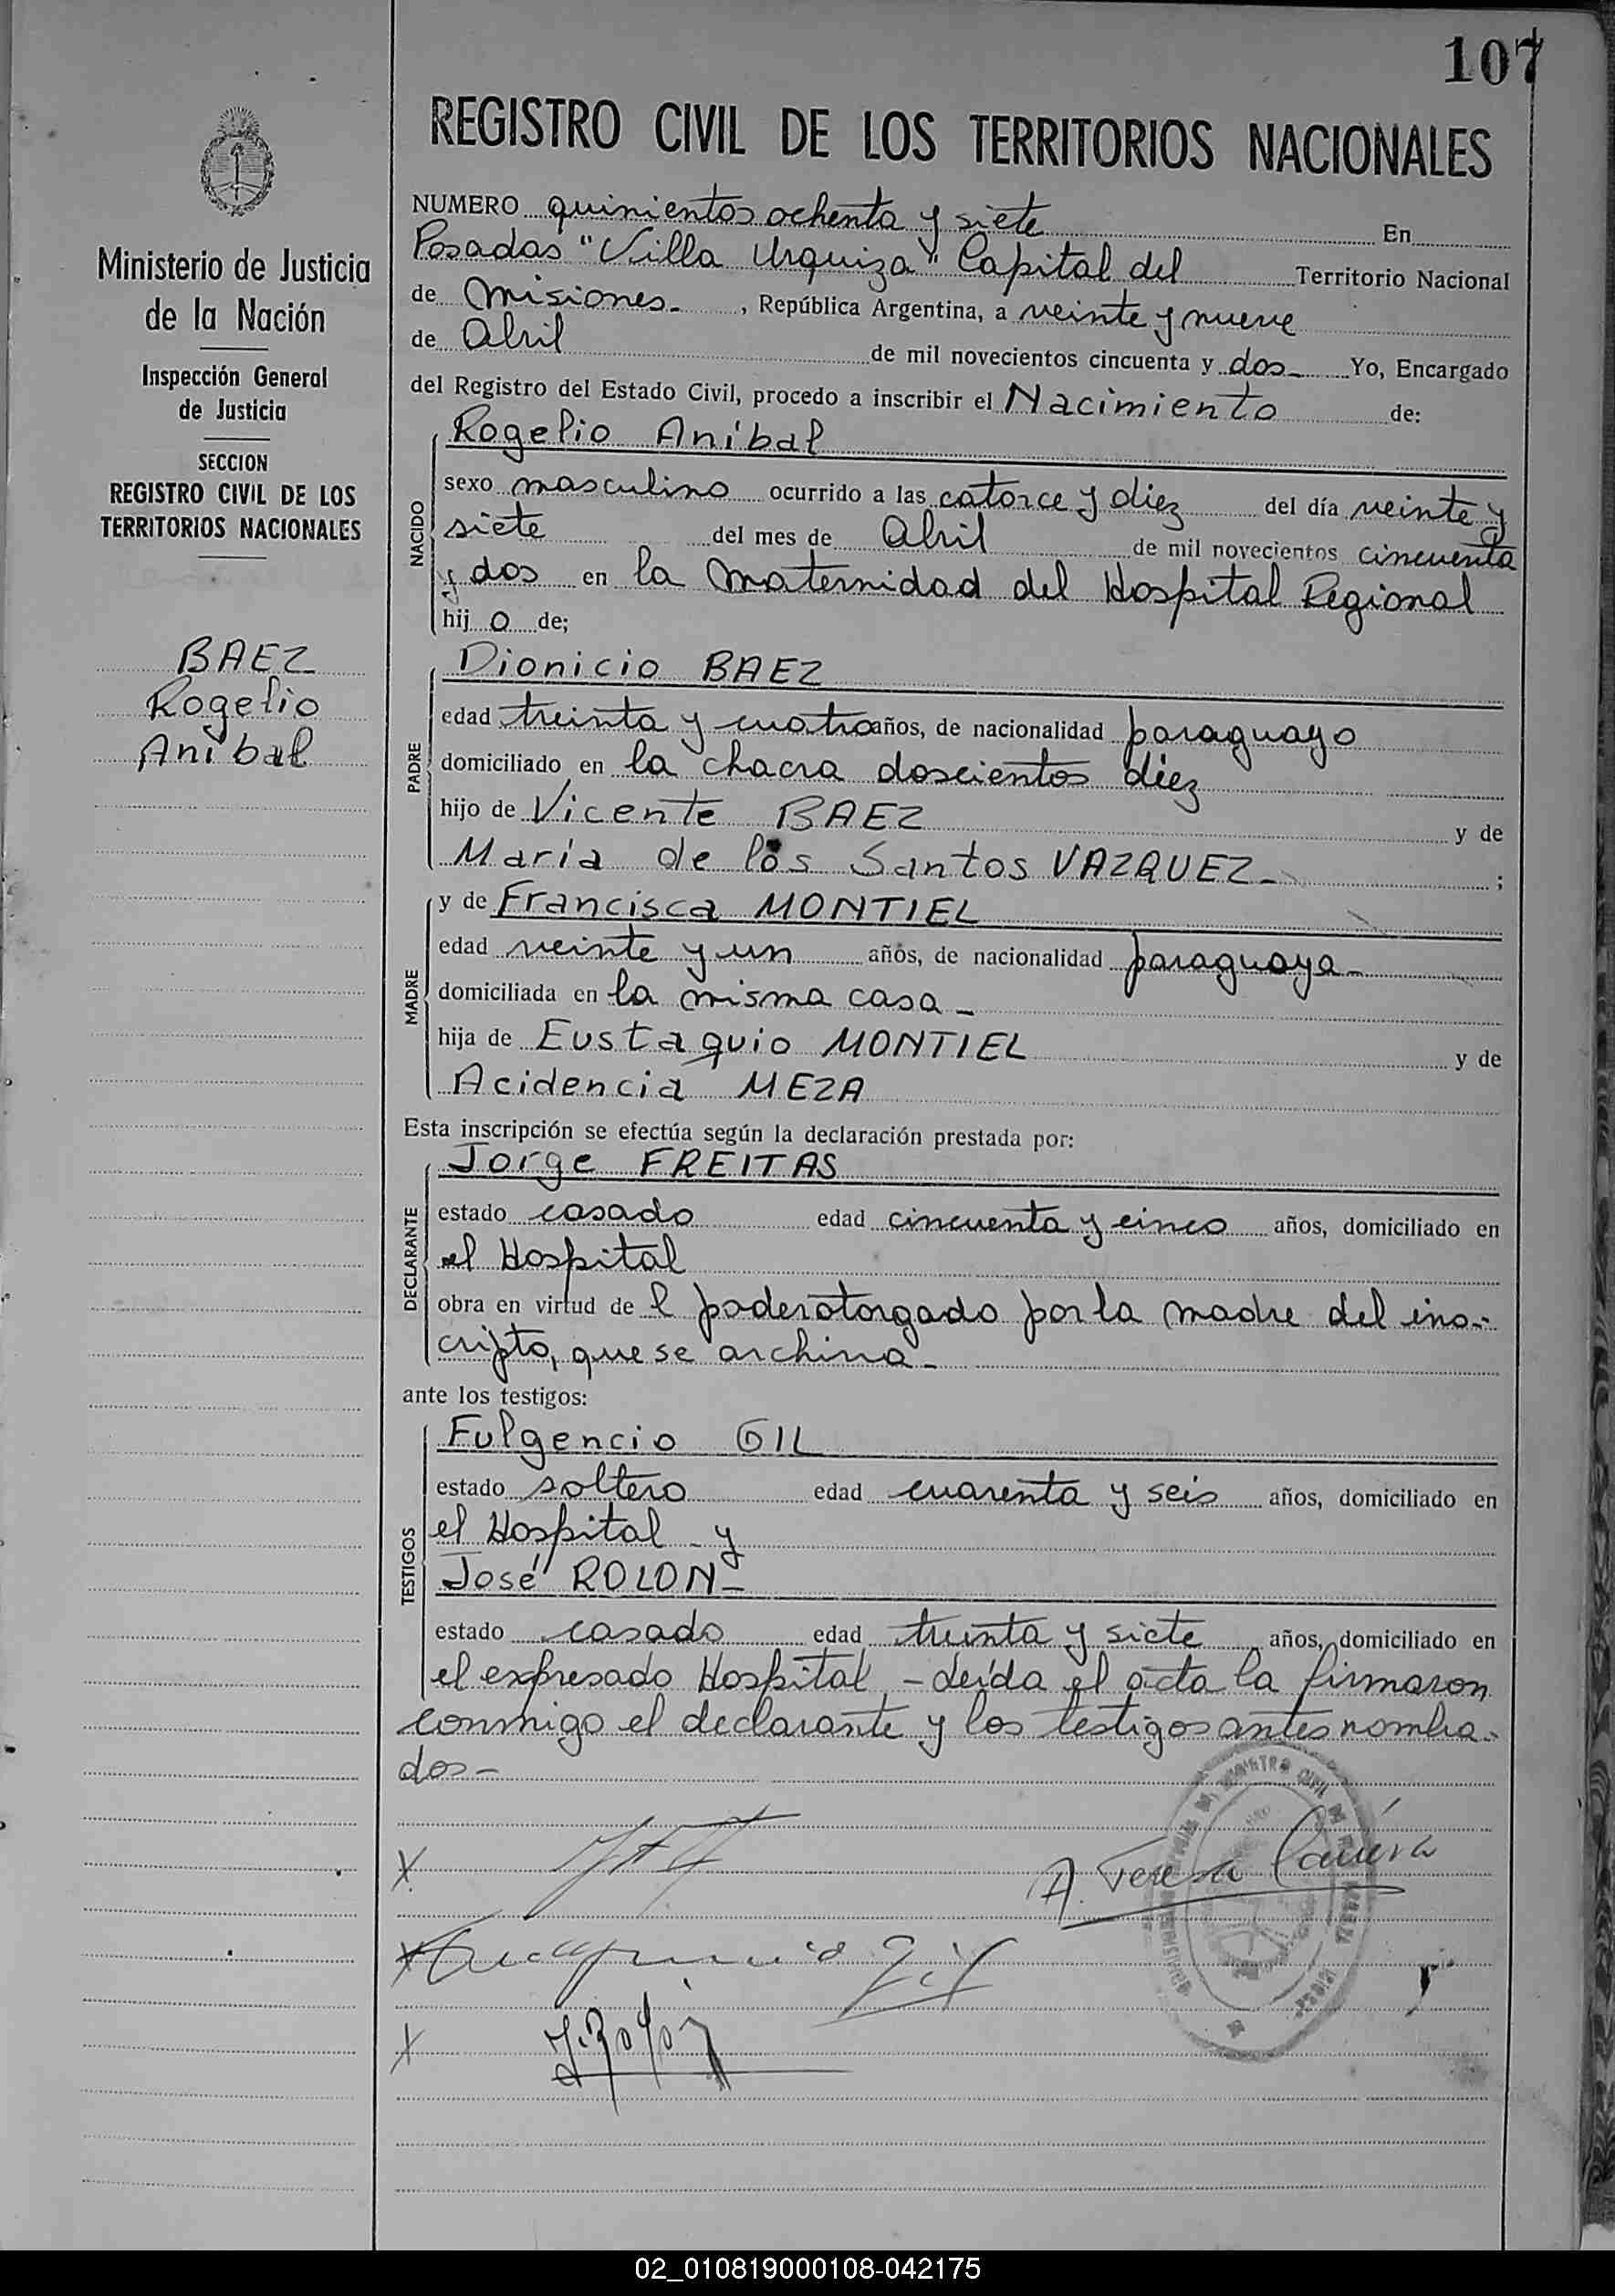 107
REGISTRO CIVIL DE LOS TERRITORIOS NACIONALES
Ministerio de Justicia
de la Nación
Inspección General
de Justicia
SECCION
REGISTRO CIVIL DE LOS
TERRITORIOS NACIONALES
BAEZ
Rogelio
Aníbal
NUMERO quinientos ochenta y siete En
Posadas "Villa Urquiza" Capital del Territorio Nacional
de Misiones- , República Argentina, a veinte y nueve
de Abril de mil novecientos cincuenta y dos- Yo, Encargado
del Registro del Estado Civil, procedo a inscribir el Nacimiento de:
Rogelio Aníbal
NACIDO
sexo masculino ocurrido a las catorce y diez del día veinte y
siete del mes de Abril de mil novecientos cincuenta
y dos en la Maternidad del Hospital Regional
hij o de;
Dionicio BAEZ
PADRE
edad treinta y cuatro años, de nacionalidad paraguayo
domiciliado en la chacra doscientos diez
hijo de Vicente BAEZ y de
María de los Santos VAZQUEZ- ;
y de Francisca MONTIEL
MADRE
edad veinte y un años, de nacionalidad paraguaya-
domiciliada en la misma casa-
hija de Eustaquio MONTIEL y de
Acidencia MEZA
Esta inscripción se efectúa según la declaración prestada por:
Jorge FREITAS
DECLARANTE
estado casado edad cincuenta y cinco años, domiciliado en
el Hospital
obra en virtud de l poder otorgado por la madre del ins-
cripto, que se archiva-
ante los testigos:
Fulgencio GIL
TESTIGOS
estado soltero edad cuarenta y seis años, domiciliado en
el Hospital - y
José ROLON-
estado casado edad treinta y siete años, domiciliado en
el expresado Hospital - Leída el acta la firmaron
conmigo el declarante y los testigos antes nombra-
dos-
X
A. Teresa
X Gil
X J. Rolón
02_010819000108-042175